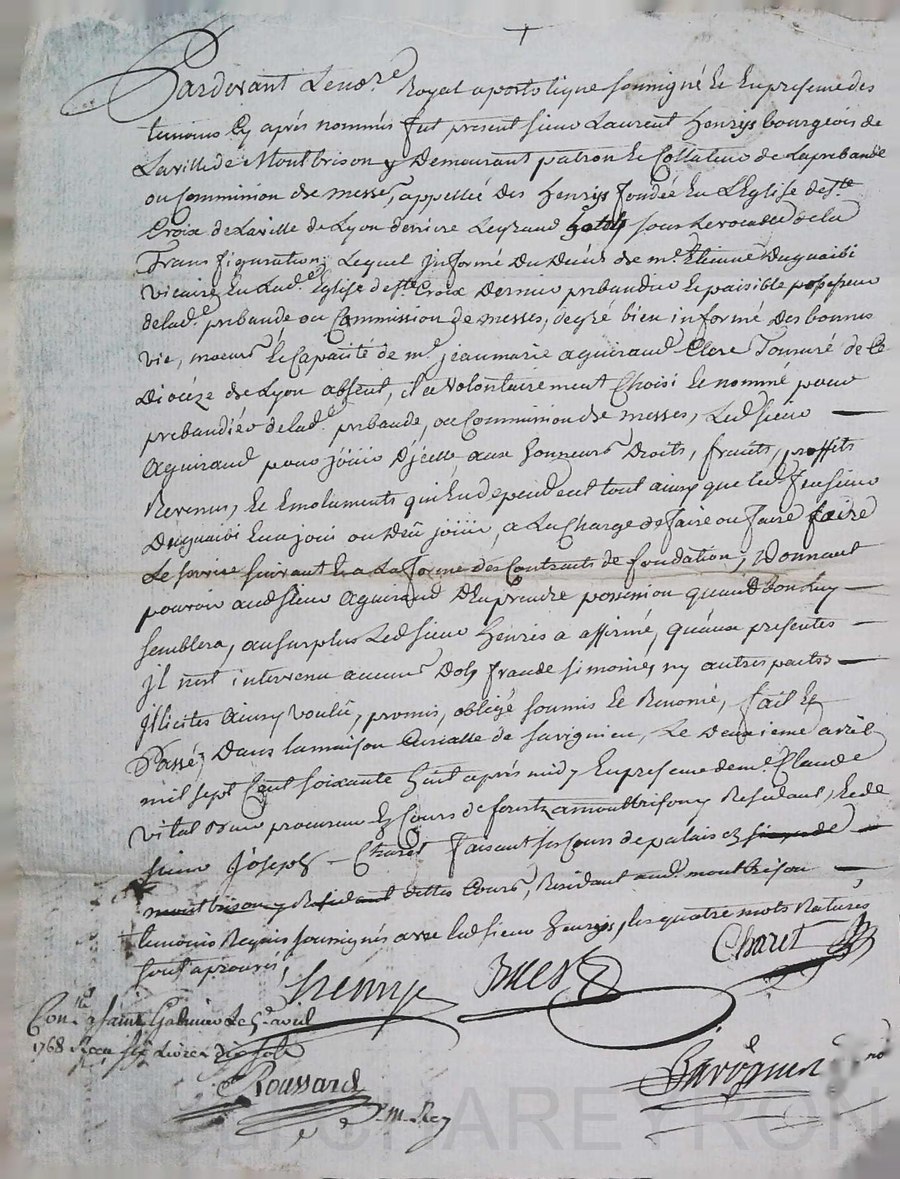 Pardevant Le no.re Royal apostolique soussigné Et En presence des
temoins Cy après nommés fut present sieur Laurent henrys bourgeois de
La ville de Montbrison y Demeurant patron Et Collateur de La prebande
ou Commission de messes, appellée des henrys fondée En L'Eglise de S.te
Croix de La ville de Lyon derriere Le grand sous Le vocable de la
Transfiguration; Lequel informé Du Décés de m.e Etienne Duguaibi
vicaire En Lad.e Eglise de S.te Croix Dernier prebandier Et paisible possesseur
de lad.e prebande ou Commission de messes, deplus bien informé Des bonnes
vie, moeurs Et Capacité de m.e jean marie aguiraud Clerc Tonsuré de Ce
Diocèze de Lyon absent, il a volontairement Choisi Et nommé pour
prebandiér de lad.e prebande, ou Commission de messes, Led. sieur
Aguiraud pour joüir D'jcelle aux honneurs Droits, fruits, proffits
Revenus, Et Emoluments qui En dependent tout ainsy que led. feu sieur
Duguaibi En a joui ou Dêu joüir, a La Charge de faire ou faire faire
Le service suivant Et a La forme des Contracts de fondation; Donnant
pouvoir aud. sieur aguiraud D'En prendre possession quand Bon Luy
semblera, au surplus Led. sieur henris a affirmé, qu'aux presentes
jl n'est intervenu aucuns Dol, fraude simonies, ny autres pactes
jllicites Ainsy Voulu, promis, obligé soumis Et Renoncé, fait Et
Passé; Dans la maison Curialle de Savignieu, Le Deuxieme avril
mil sept Cent soixante huit après midy En presence de m.e Claude
vital procureur Es Cours de forest a montbrison y Residant, Et de
sieur Joseph Charet faisant ses Cours de palais Es
montbrison y Residant dittes Cours, Residant aud. montbrison
temoins Requis soussignés avec led. sieur henrys, les quatre mots Raturés
sont aprouvés,
henrys
Charet
Con.lé a saint Galmier Le avril
1768 Reçu six Livres dix sols
Roussard